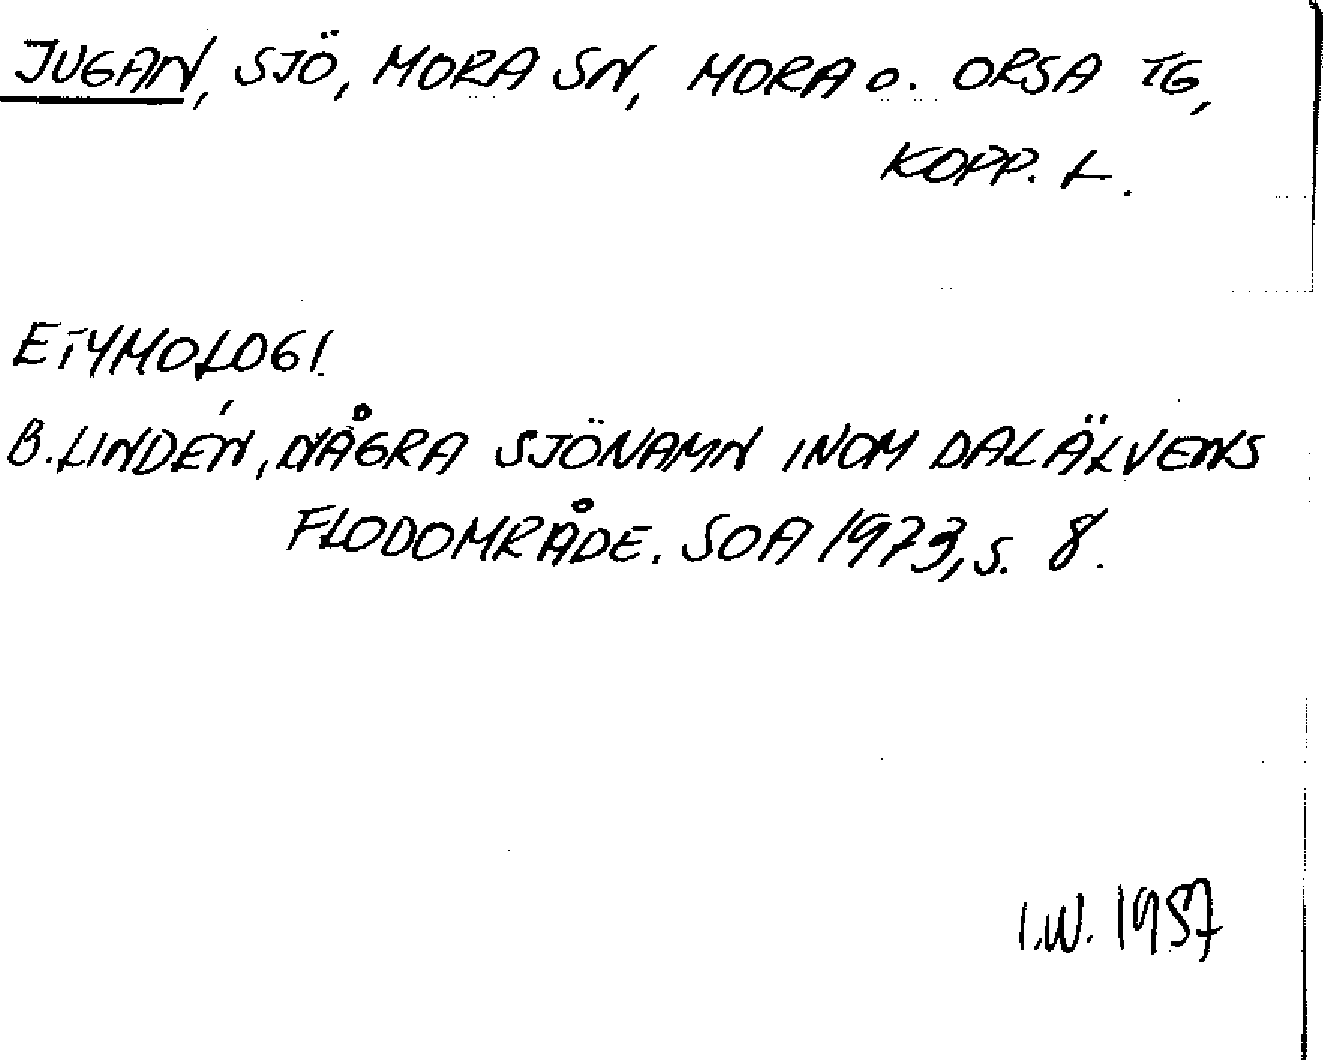 JUGAN, SJÖ, MORA SN, MORA o. ORSA TG,
KOPP. L.
ETYMOLOGI.
B. LINDÉN, NÅGRA SJÖNAMN INOM DALÄLVENS
FLODOMRÅDE. SOA 1973, S. 8.
I.W. 1987